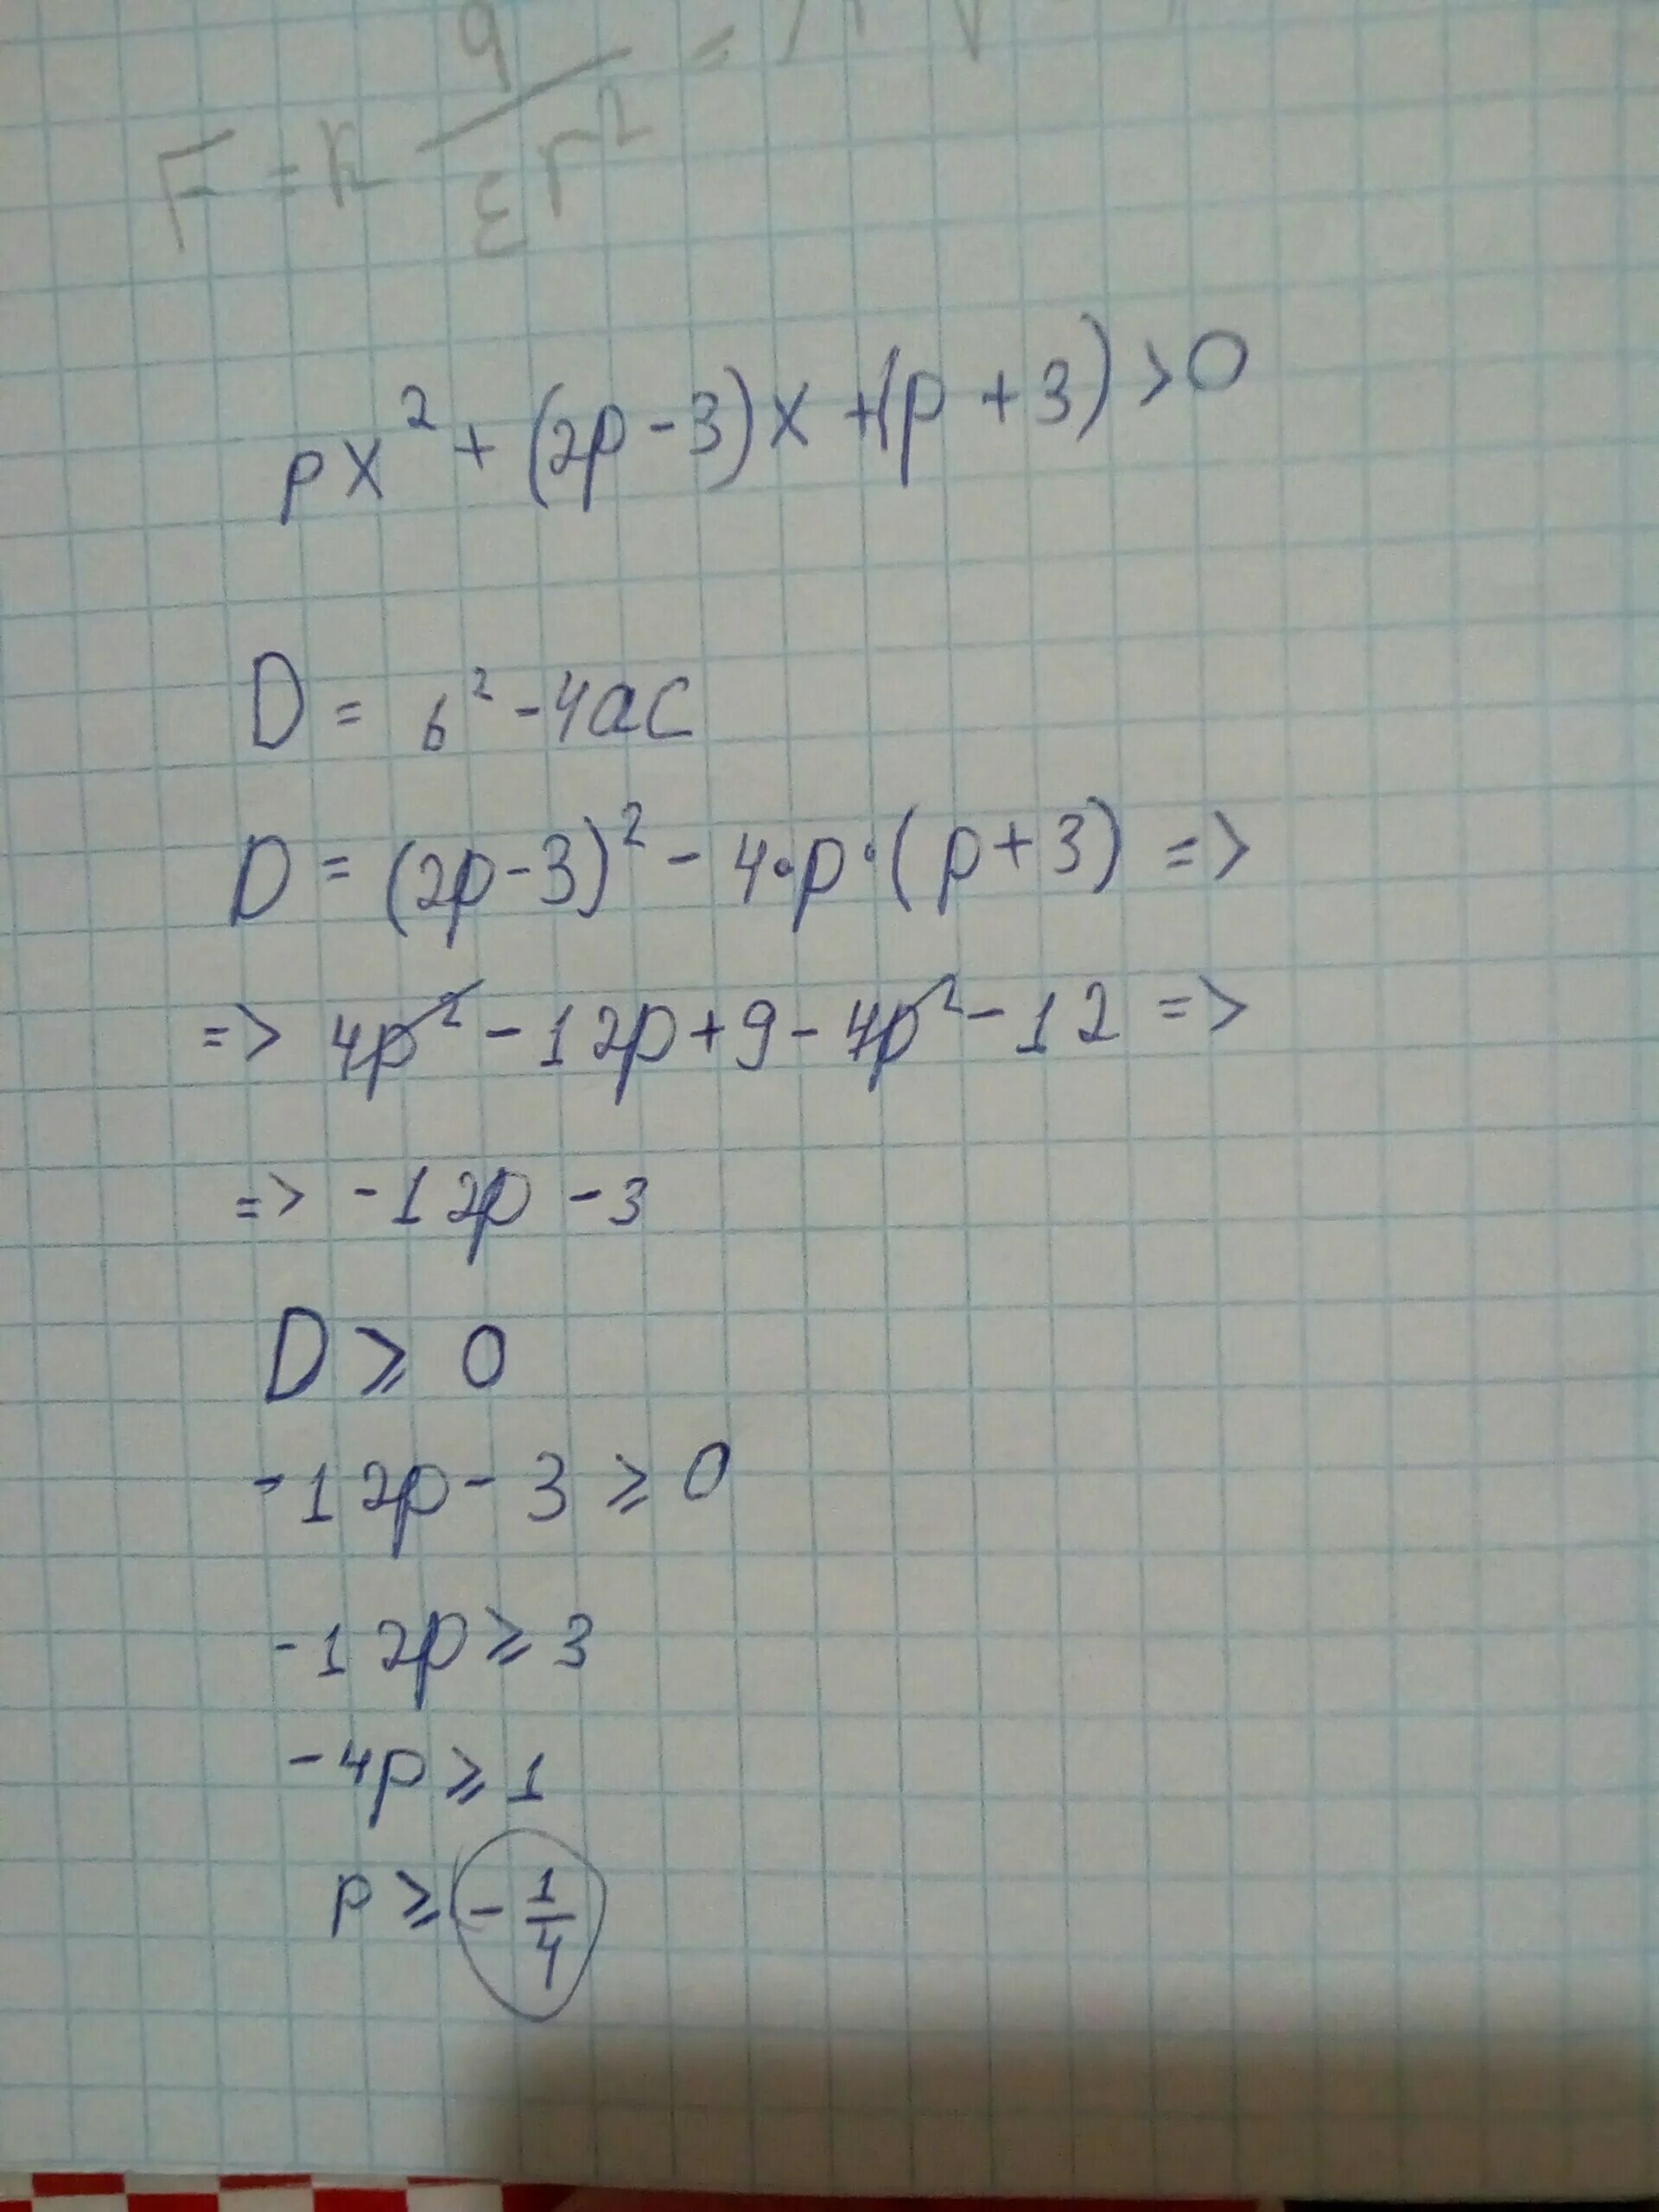 F = k q / εr² =
px² + (2p - 3)x + (p + 3) > 0
D = b² - 4ac
D = (2p - 3)² - 4·p·(p + 3) =>
=> 4p² - 12p + 9 - 4p² - 12 =>
=> -12p - 3
D ⩾ 0
-12p - 3 ⩾ 0
-12p ⩾ 3
-4p ⩾ 1
p ⩾ - 1/4